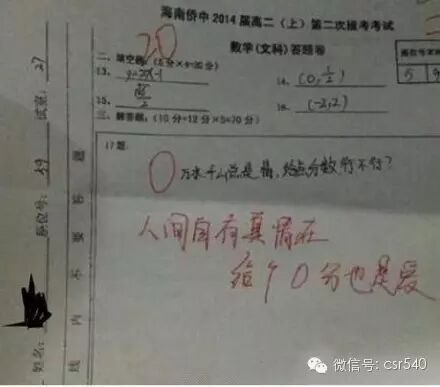 海南侨中2014届高二(上)第二次模考考试
数学(文科)答题卷
20
二、填空题:(5分×4=20分)
13.
14. (0, 1/2)
15.
16. (-2,2)
三、解答题:(10分+12分×5=70分)
17题:
0
万水千山总是情,给点分数行不行?
人间自有真情在
给个0分也是爱
试室: 27
座位号: 29
姓名:
线 内 不 要 答 题
5
微信号: csr540